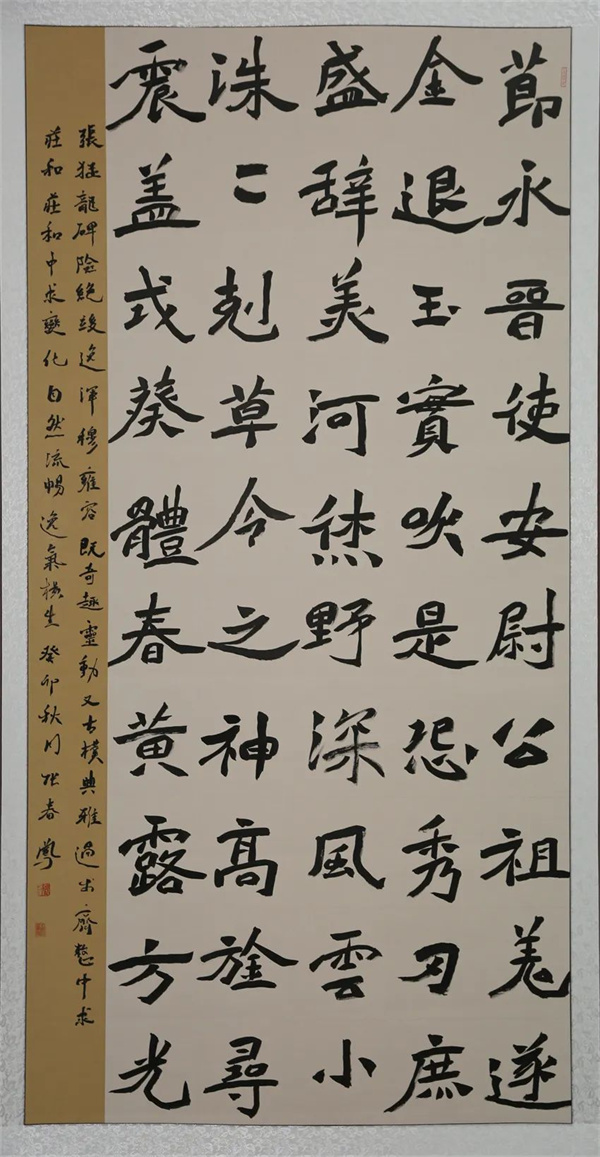 莭永晉使安尉公祖羌遂
金退玉實吹是恐秀刃庶
盛辞美河烋野深風雲小
洙二剋草今之神高旌尋
震盖戎葵體春黃露方光
張猛龍碑險絕竣逸渾穆雍容既奇趣靈動又古樸典雅過出齊整中求
莊和莊和中求變化自然流暢逸氣橫生癸卯秋月張春鳳